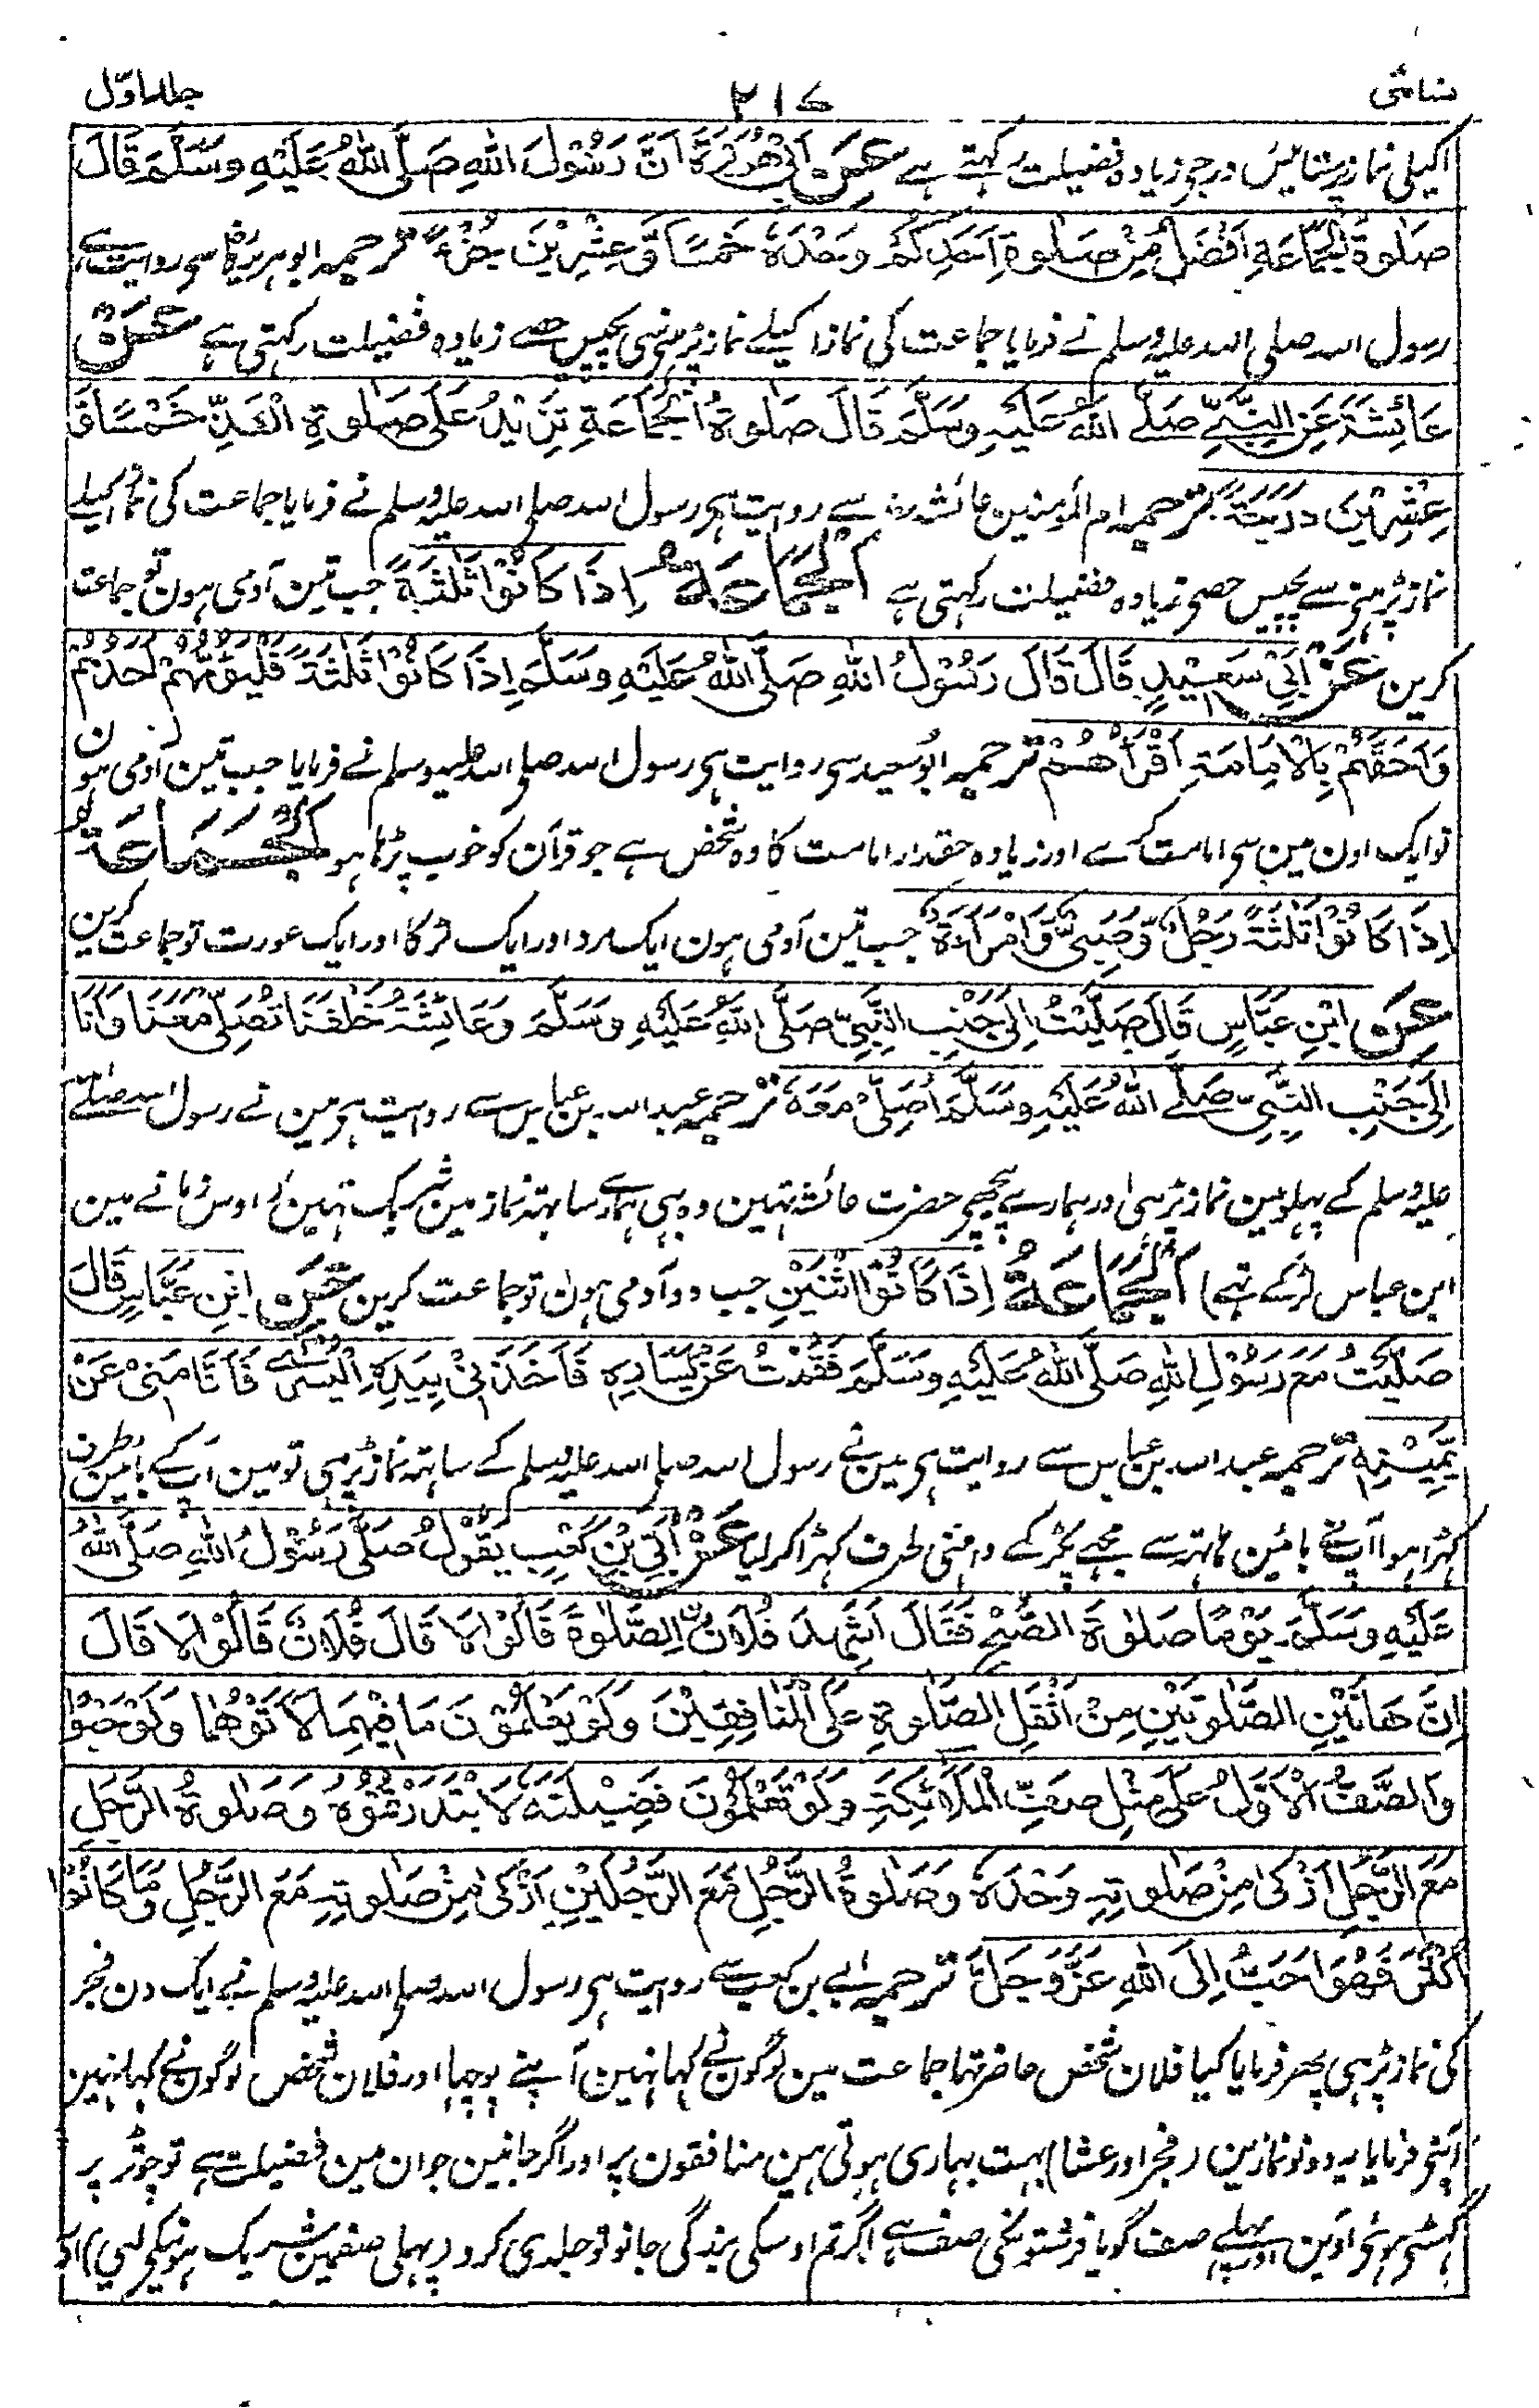 نسائی ۲۱۷ جلد اوّل
اکیلی نماز پر ستائیس درجو زیادہ فضیلت رکہتے ہے عَنْ اَبِیْ هُرَیْرَةَ اَنَّ رَسُوْلَ اللّٰهِ صَلَّی اللّٰهُ عَلَیْهِ وَسَلَّمَ قَالَ
صَلٰوةُ الْجَمَاعَةِ اَفْضَلُ مِنْ صَلٰوةِ اَحَدِکُمْ وَحْدَهٗ خَمْسًا وَّعِشْرِیْنَ جُزْءً ترجمہ ابوہریرہ سو روایت ہے
رسول اللہ صلی اللہ علیہ وسلم نے فرمایا جماعت کی نماز اکیلے نماز پڑہنی سی پچیس حصے زیادہ فضیلت رکہتی ہے عَنْ
عَائِشَةَ عَنِ النَّبِیِّ صَلَّے اللّٰهُ عَلَیْهِ وَسَلَّمَ قَالَ صَلٰوةُ الْجَمَاعَةِ تَزِیْدُ عَلٰی صَلٰوةِ الْفَذِّ خَمْسًا وَّ
عِشْرِیْنَ دَرَجَةً ترجمہ ام المؤمنین عائشہ رضہ سے روایت ہی رسول اللہ صلے اللہ علیہ وسلم نے فرمایا جماعت کی نماز اکیلے
نماز پڑہنی سے پچیس حصے زیادہ فضیلت رکہتی ہے اَلْجَمَاعَةُ اِذَا کَانُوْا ثَلٰثَةً جب تین آدمی ہون تو جماعت
کرین عَنْ اَبِیْ سَعِیْدٍ قَالَ قَالَ رَسُوْلُ اللّٰهِ صَلَّی اللّٰهُ عَلَیْهِ وَسَلَّمَ اِذَا کَانُوْا ثَلٰثَةً فَلْیَؤُمَّهُمْ اَحَدُهُمْ
وَاَحَقُّهُمْ بِالْاِمَامَةِ اَقْرَأُهُمْ ترجمہ ابوسعید سی روایت ہی رسول اللہ صلے اللہ علیہ وسلم نے فرمایا جب تین آدمی ہون
تو ایک اون مین سی امامت کرے اور زیادہ حقدار امامت کا وہ شخص ہے جو قرآن کو خوب پڑہا ہو اَلْجَمَاعَةُ
اِذَا کَانُوْا ثَلٰثَةً رَجُلٌ وَّصَبِیٌّ وَّامْرَأَةٌ جب تین آدمی ہون ایک مرد اور ایک لڑکا اور ایک عورت تو جماعت کرین
عَنِ ابْنِ عَبَّاسٍ قَالَ صَلَّیْتُ اِلٰی جَنْبِ النَّبِیِّ صَلَّی اللّٰهُ عَلَیْهِ وَسَلَّمَ وَعَائِشَةُ خَلْفَنَا تُصَلِّیْ مَعَنَا وَاَنَا
اِلٰی جَنْبِ النَّبِیِّ صَلَّے اللّٰهُ عَلَیْهِ وَسَلَّمَ اُصَلِّیْ مَعَهٗ ترجمہ عبداللہ بن عباس سے روایت ہی مین نے رسول اللہ صلے
علیہ وسلم کے پہلو مین نماز پڑہی اور ہمارے پیچہے حضرت عائشہ تہین وہ بہی ہمارے ساتہہ نماز مین شریک تہین اوس زمانے مین
ابن عباس لڑکے تہے) اَلْجَمَاعَةُ اِذَا کَانُوْا اثْنَیْنِ جب دو آدمی ہون تو جماعت کرین عَنِ ابْنِ عَبَّاسٍ قَالَ
صَلَّیْتُ مَعَ رَسُوْلِ اللّٰهِ صَلَّی اللّٰهُ عَلَیْهِ وَسَلَّمَ فَقُمْتُ عَنْ یَّسَارِهٖ فَاَخَذَنِیْ بِیَدِهِ الْیُسْرٰے فَاَقَامَنِیْ عَنْ
یَّمِیْنِهٖ ترجمہ عبداللہ بن عباس سے روایت ہی مین نے رسول اللہ صلے اللہ علیہ وسلم کے ساتہہ نماز پڑہی تو مین آپ کے بائین طرف
کہڑا ہوا آپ نے بائین ہاتہہ سے مجہے پکڑ کے داہنی طرف کہڑا کر لیا عَنْ اُبَیِّ بْنِ کَعْبٍ یَقُوْلُ صَلّٰی رَسُوْلُ اللّٰهِ صَلَّی اللّٰهُ
عَلَیْهِ وَسَلَّمَ یَوْمًا صَلٰوةَ الصُّبْحِ فَقَالَ اَشَهِدَ فُلَانٌ الصَّلٰوةَ قَالُوْا لَا قَالَ فُلَانٌ قَالُوْا لَا قَالَ
اِنَّ هَاتَیْنِ الصَّلٰوتَیْنِ مِنْ اَثْقَلِ الصَّلٰوةِ عَلَی الْمُنَافِقِیْنَ وَلَوْ یَعْلَمُوْنَ مَا فِیْهِمَا لَاَتَوْهُمَا وَلَوْ حَبْوًا
وَالصَّفُّ الْاَوَّلُ عَلٰی مِثْلِ صَفِّ الْمَلَائِکَةِ وَلَوْ تَعْلَمُوْنَ فَضِیْلَتَهٗ لَابْتَدَرْتُمُوْهُ وَصَلٰوةُ الرَّجُلِ
مَعَ الرَّجُلِ اَزْکٰی مِنْ صَلٰوتِهٖ وَحْدَهٗ وَصَلٰوةُ الرَّجُلِ مَعَ الرَّجُلَیْنِ اَزْکٰی مِنْ صَلٰوتِهٖ مَعَ الرَّجُلِ وَمَا کَانُوْا
اَکْثَرَ فَهُوَ اَحَبُّ اِلَی اللّٰهِ عَزَّ وَجَلَّ ترجمہ ابی بن کعب سے روایت ہی رسول اللہ صلے اللہ علیہ وسلم نے ایک دن فجر
کی نماز پڑہی پھر فرمایا کیا فلان شخص حاضر تہا جماعت مین لوگون نے کہا نہین آپنے پوچہا اور فلان شخص لوگون نے کہا نہین
آپنے فرمایا یہ دونو نمازین (فجر اور عشا) بہت بہاری ہوتی ہین منافقون پر اور اگر جانین جو ان مین فضیلت ہے تو چوتڑ پر
گہسٹے ہوئے آوین اور پہلے صف گویا فرشتونکی صف ہے اگر تم اوسکی بزرگی جانو تو جلدی کرو (پہلی صف مین شریک ہونیکے لیے)